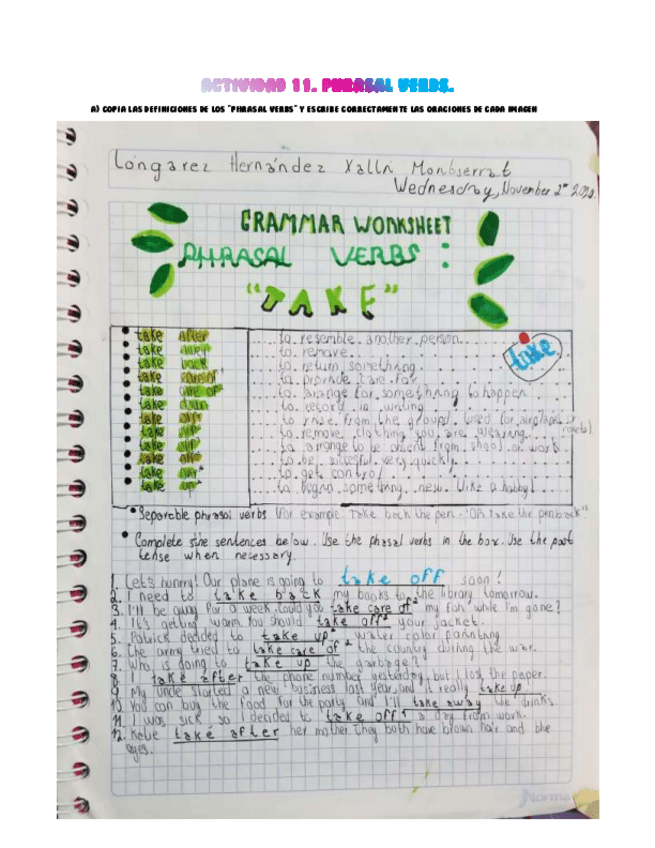 ACTIVIDAD 11. PHRASAL VERBS.
A) COPIA LAS DEFINICIONES DE LOS "PHRASAL VERBS" Y ESCRIBE CORRECTAMENTE LAS ORACIONES DE CADA IMAGEN
Longarez Hernández Xalli Montserrat
Wednesday, November 2
GRAMMAR WORKSHEET
PHRASAL VERBS :
"TAKE"
take
take after to resemble another person
take away to remove
take back to return something
take care of to provide care for
take care of to arange for something to happen
take down to record in writing
take off to from the ground. Used for airplanes or
take off to remove clothing you are wearing
take off to arrange to be absent from or work
take off to be very quickly
take to get control
take up to began something new. (like a hobby)
• Separeble phrasal verbs (for example Take back the pen. "OR take the pen back"
• Complete the sentences below. Use the phrasal verbs in the box. Use the past
tense when necessary.
1. Let's hurry! Our plane is going to take off soon!
2. I need to take back my books to the library tomorrow.
3. I'll be for a week. Could you take care of my fish while I'm gone?
4. It's getting warm. You should take off your jacket.
5. Patrick decided to take up water color painting
6. The army tried to take care of the country during the war.
7. Who is going to take up the garbage?
8. I take after the phone number yesterday, but I lost the paper.
9. My uncle started a new business last year, and it really take up
10. You can buy the food for the party and I'll take away the drinks.
11. I was sick so I decided to take off a day from work.
12. Katie take after her mother. They both have brown hair and
eyes.
Norma